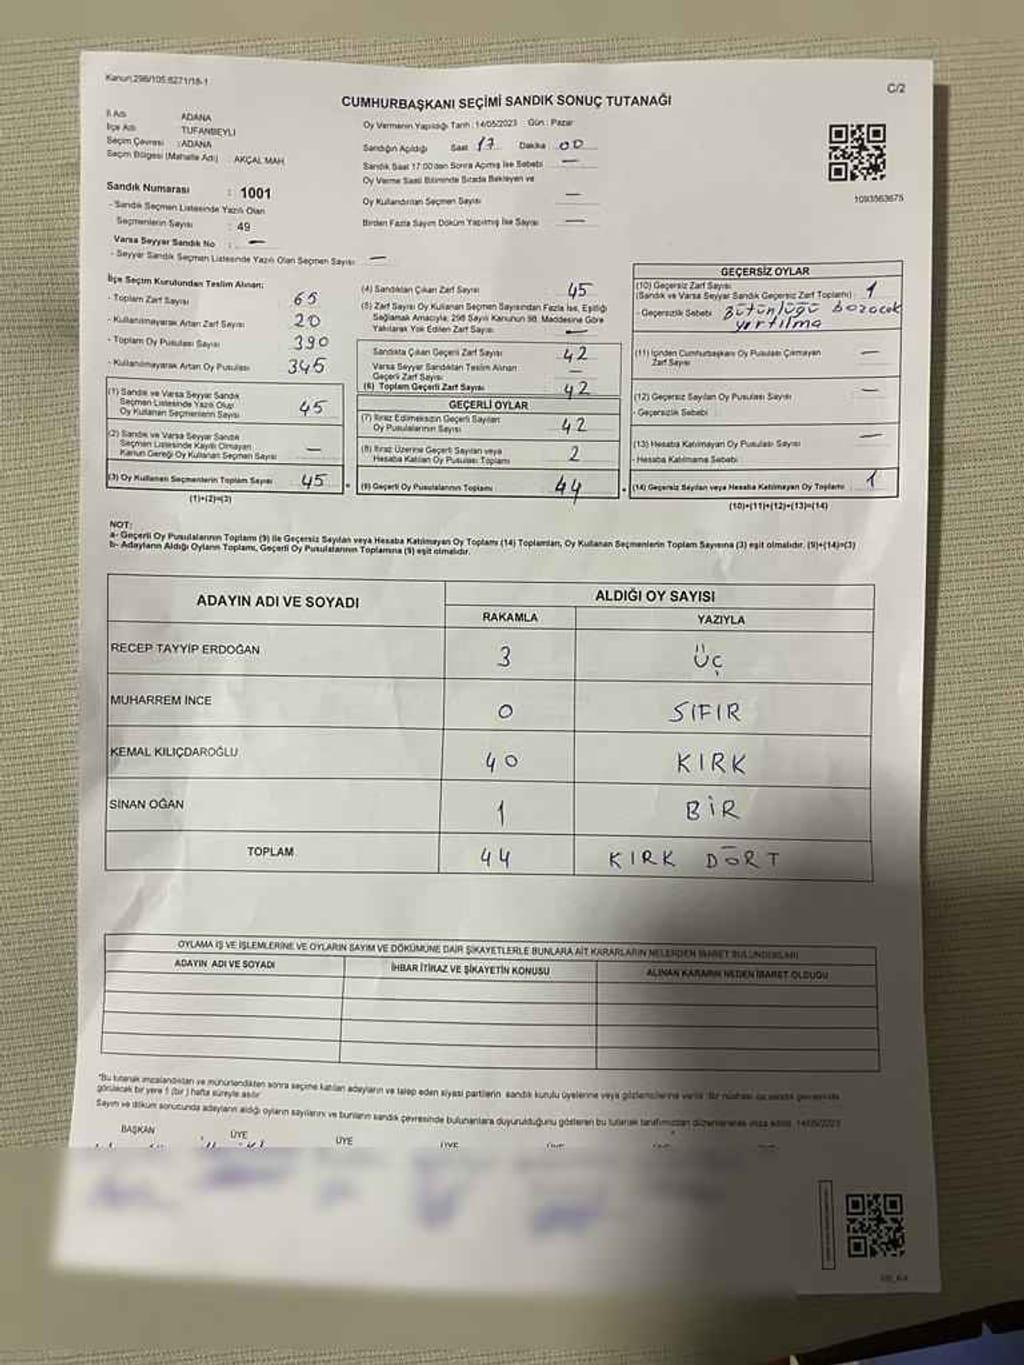 Kanun;298/105:6271/18-1
C/2
CUMHURBAŞKANI SEÇİMİ SANDIK SONUÇ TUTANAĞI
İl Adı ADANA
İlçe Adı TUFANBEYLİ
Seçim Çevresi :ADANA
Seçim Bölgesi (Mahalle Adı) : AKÇAL MAH
Sandık Numarası : 1001
- Sandık Seçmen Listesinde Yazılı Olan
Seçmenlerin Sayısı : 49
Varsa Seyyar Sandık No : —
- Seyyar Sandık Seçmen Listesinde Yazılı Olan Seçmen Sayısı: —
Oy Vermenin Yapıldığı Tarih :14/05/2023 Gün : Pazar
Sandığın Açıldığı Saat 17 Dakika 00
Sandık Saat 17:00'den Sonra Açılmış İse Sebebi —
Oy Verme Saati Bitiminde Sırada Bekleyen ve
Oy Kullandırılan Seçmen Sayısı —
Birden Fazla Sayım Döküm Yapılmış İse Sayısı —
1093563675
İlçe Seçim Kurulundan Teslim Alınan;
- Toplam Zarf Sayısı 65
- Kullanılmayarak Artan Zarf Sayısı 20
- Toplam Oy Pusulası Sayısı 390
- Kullanılmayarak Artan Oy Pusulası 345
(1) Sandık ve Varsa Seyyar Sandık
Seçmen Listesinde Yazılı Olup
Oy Kullanan Seçmenlerin Sayısı 45
(2) Sandık ve Varsa Seyyar Sandık
Seçmen Listesinde Kayıtlı Olmayan
Kanun Gereği Oy Kullanan Seçmen Sayısı —
(3) Oy Kullanan Seçmenlerin Toplam Sayısı 45
(1)+(2)=(3)
(4) Sandıktan Çıkan Zarf Sayısı 45
(5) Zarf Sayısı Oy Kullanan Seçmen Sayısından Fazla İse, Eşitliği
Sağlamak Amacıyla; 298 Sayılı Kanunun 98. Maddesine Göre
Yakılarak Yok Edilen Zarf Sayısı —
Sandıkta Çıkan Geçerli Zarf Sayısı 42
Varsa Seyyar Sandıktan Teslim Alınan
Geçerli Zarf Sayısı —
(6) Toplam Geçerli Zarf Sayısı 42
GEÇERLİ OYLAR
(7) İtiraz Edilmeksizin Geçerli Sayılan
Oy Pusulalarının Sayısı 42
(8) İtiraz Üzerine Geçerli Sayılan veya
Hesaba Katılan Oy Pusulası Toplamı 2
(9) Geçerli Oy Pusulalarının Toplamı 44
GEÇERSİZ OYLAR
(10) Geçersiz Zarf Sayısı
(Sandık ve Varsa Seyyar Sandık Geçersiz Zarf Toplamı) : 1
- Geçersizlik Sebebi : Bütünlüğü bozacak
yırtılma
(11) İçinden Cumhurbaşkanı Oy Pusulası Çıkmayan
Zarf Sayısı —
(12) Geçersiz Sayılan Oy Pusulası Sayısı —
- Geçersizlik Sebebi
(13) Hesaba Katılmayan Oy Pusulası Sayısı —
- Hesaba Katılmama Sebebi
(14) Geçersiz Sayılan veya Hesaba Katılmayan Oy Toplamı 1
(10)+(11)+(12)+(13)=(14)
NOT:
a- Geçerli Oy Pusulalarının Toplamı (9) ile Geçersiz Sayılan veya Hesaba Katılmayan Oy Toplamı (14) Toplamları, Oy Kullanan Seçmenlerin Toplam Sayısına (3) eşit olmalıdır. (9)+(14)=(3)
b- Adayların Aldığı Oyların Toplamı, Geçerli Oy Pusulalarının Toplamına (9) eşit olmalıdır.
ADAYIN ADI VE SOYADI ALDIĞI OY SAYISI
RAKAMLA YAZIYLA
RECEP TAYYİP ERDOĞAN 3 ÜÇ
MUHARREM İNCE 0 SIFIR
KEMAL KILIÇDAROĞLU 40 KIRK
SİNAN OĞAN 1 BİR
TOPLAM 44 KIRK DÖRT
OYLAMA İŞ VE İŞLEMLERİNE VE OYLARIN SAYIM VE DÖKÜMÜNE DAİR ŞİKAYETLERLE BUNLARA AİT KARARLARIN NELERDEN İBARET BULUNDUKLARI
ADAYIN ADI VE SOYADI İHBAR İTİRAZ VE ŞİKAYETİN KONUSU ALINAN KARARIN NEDEN İBARET OLDUĞU
*Bu tutanak imzalandıktan ve mühürlendikten sonra seçime katılan adayların ve talep eden siyasi partilerin sandık kurulu üyelerine veya gözlemcilerine verilir. Bir nüshası da sandık çevresinde
görülecek bir yere 1 (bir) hafta süreyle asılır.
Sayım ve döküm sonucunda adayların aldığı oyların sayılarını ve bunların sandık çevresinde bulunanlara duyurulduğunu gösteren bu tutanak tarafımızdan düzenlenerek imza edildi. 14/05/2023
BAŞKAN ÜYE ÜYE